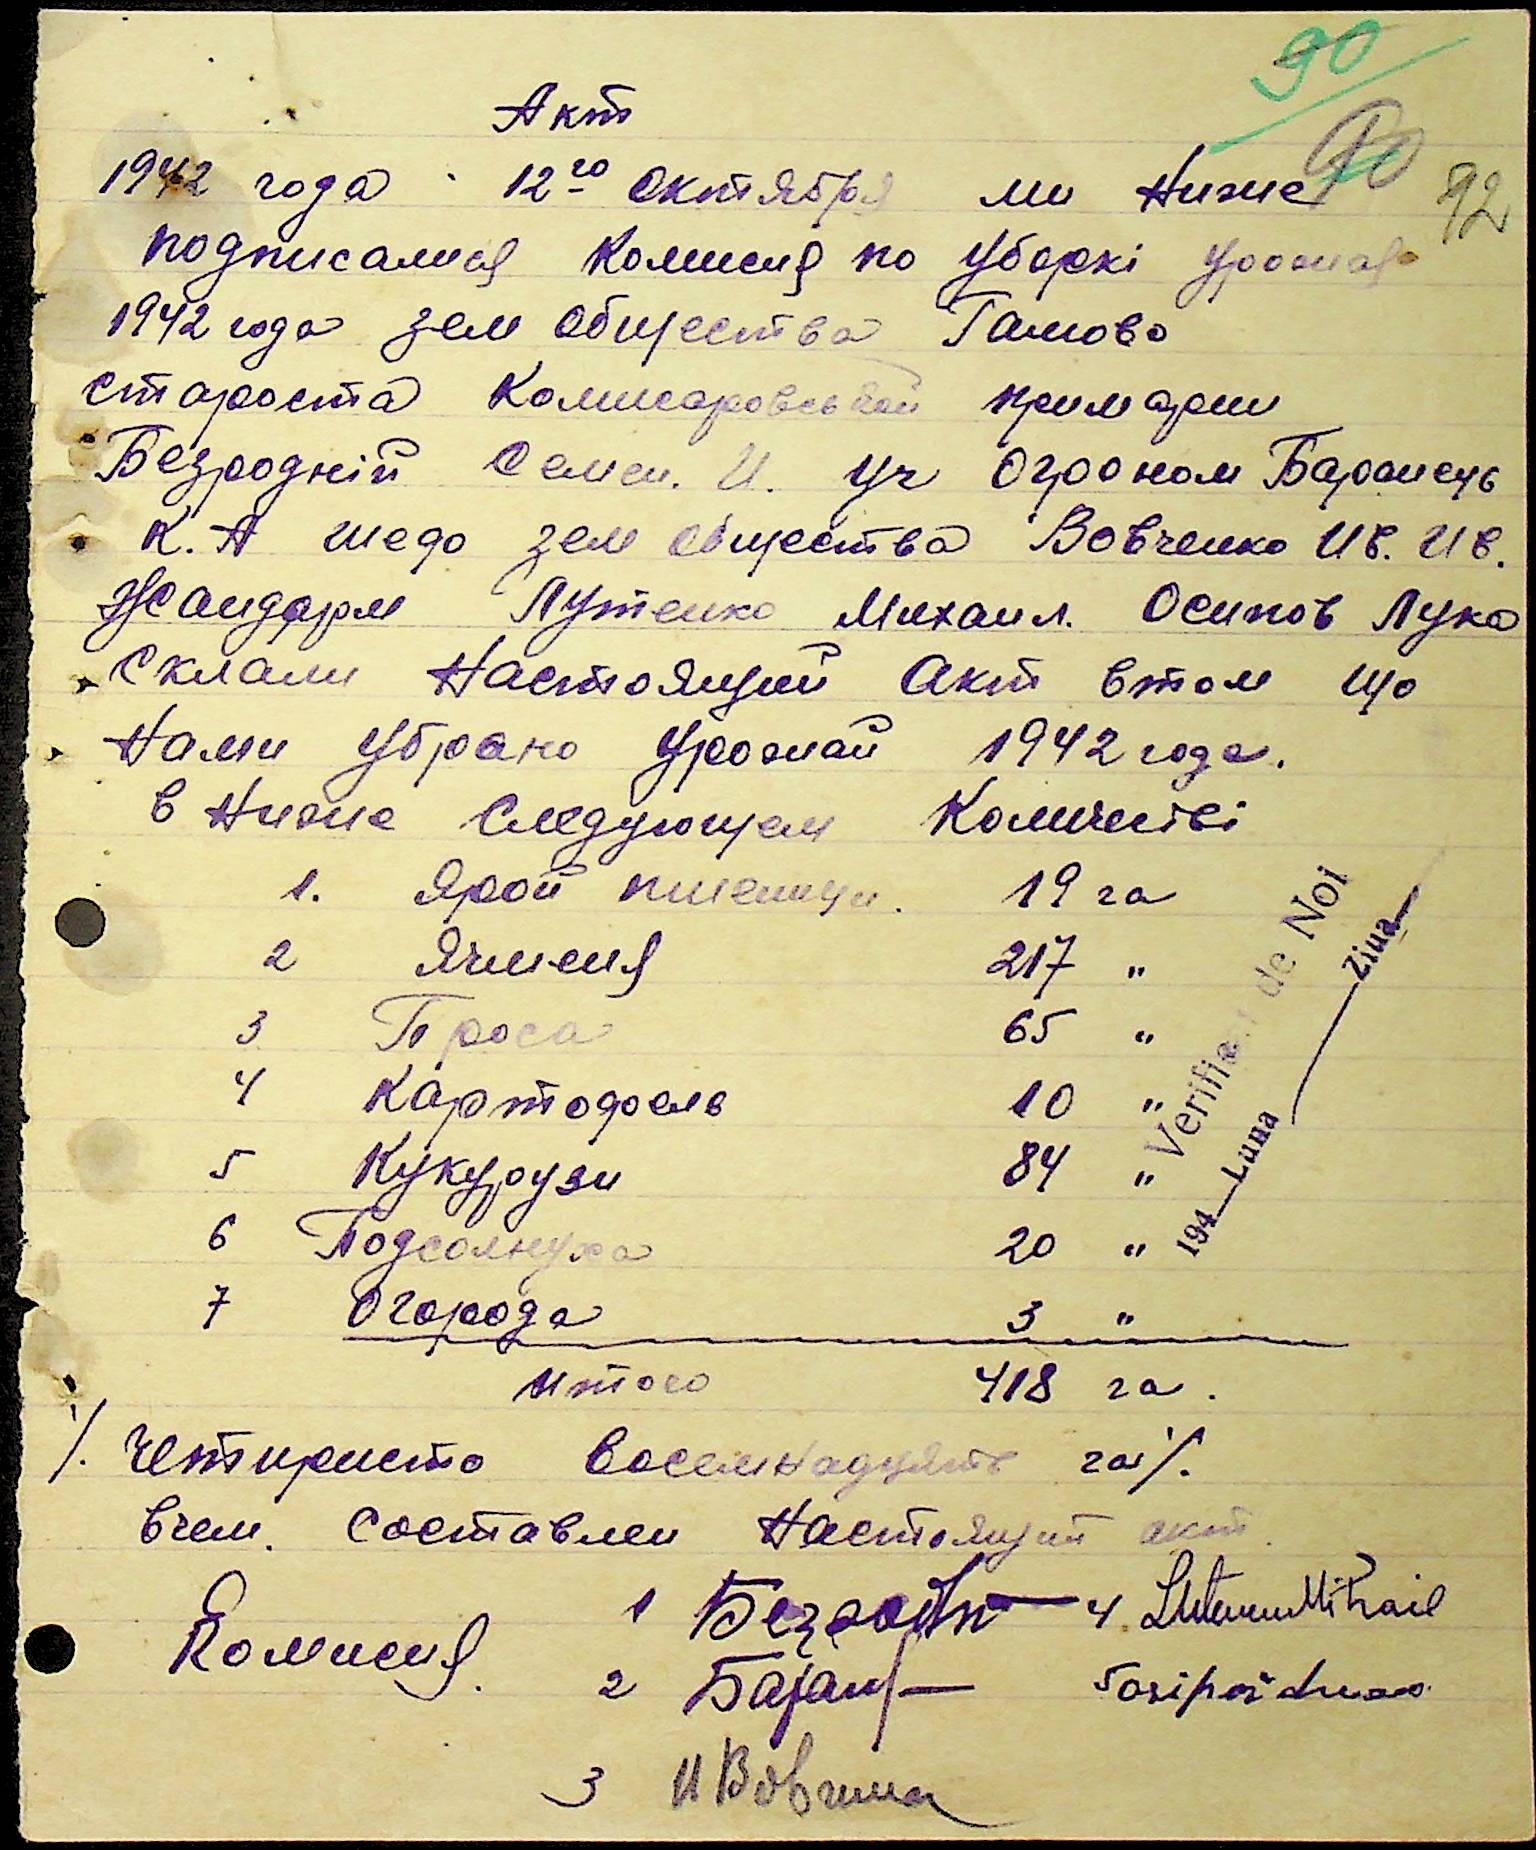 90
90
92
Акт
1942 года 12го Октября ми Ниже
подписалися Комисия по Уборкі Урожая
1942 года зем Общества Гамово
староста Комисаровськой примарии
Безродній Семен. И. Уч Огроном Баранець
К. А шедо зем Общества Вовченко Ив. Ив.
Жандарм Лутенко Михаил. Осипов Лука
Склали Настоящий Акт втом що
Нами Убрано Урожай 1942 года.
в Ниже Следующем Количестві
1. Ярой пшеници. 19 га
2 Ячменя 217 "
3 Проса 65 "
4 Картофель 10 "
5 Кукурузи 84 "
6 Подсолнуха 20 "
7 Огорода 3 "
Итого 418 га.
/. Четиристо Восемнадцять га /.
Вчем. Составлен Настоящий акт
Комисия. 1 Безродн 4. Mihail
2 Баран 5
3 И Вовченко
Verificat de Noi
194 Luna Ziua